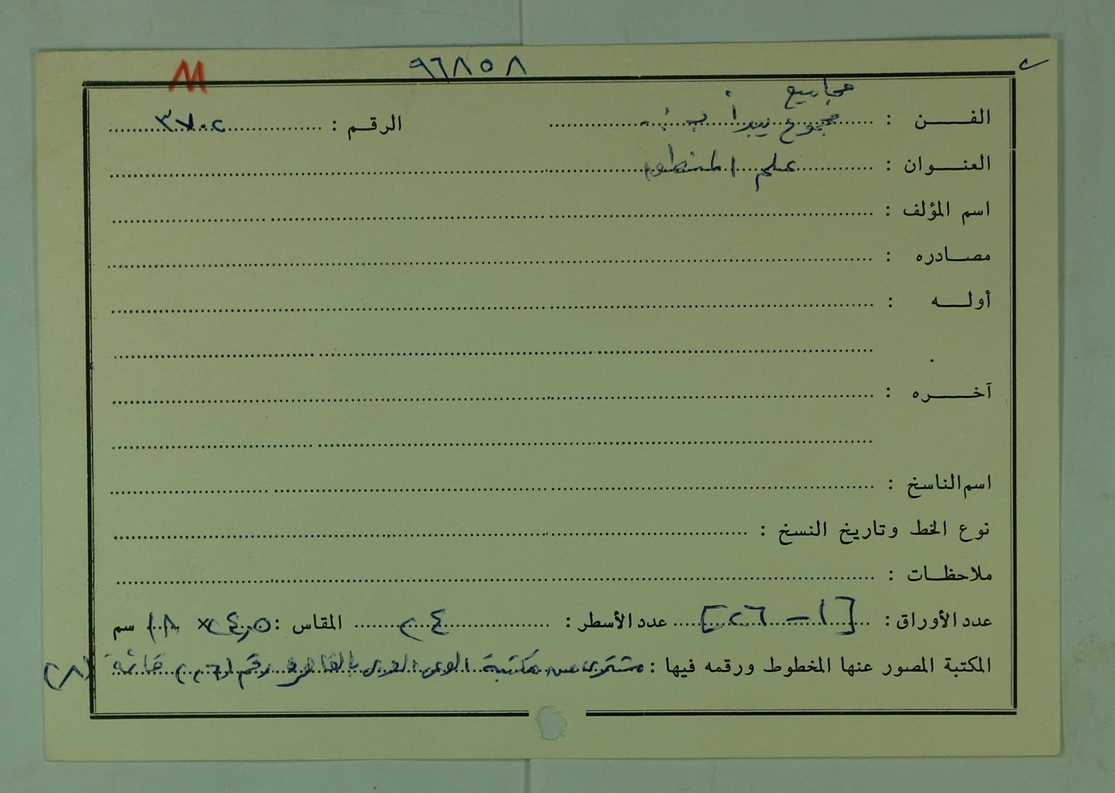 M ٩٦٨٥٨ ٢
مجاميع
الفن : مجموع يبدأ بـ الرقم : ٣٧٠٢
العنوان : علم المنطق
اسم المؤلف :
مصادره :
أوله :
آخره :
اسم الناسخ :
نوع الخط وتاريخ النسخ :
ملاحظات :
عدد الأوراق : [١ - ٢٦] عدد الأسطر : ٢٤ المقاس : ٢٤,٥ × ١٨ سم
المكتبة المصور عنها المخطوط ورقمه فيها : مشترى من مكتبة العربي بالقاهرة رقم
(٨)